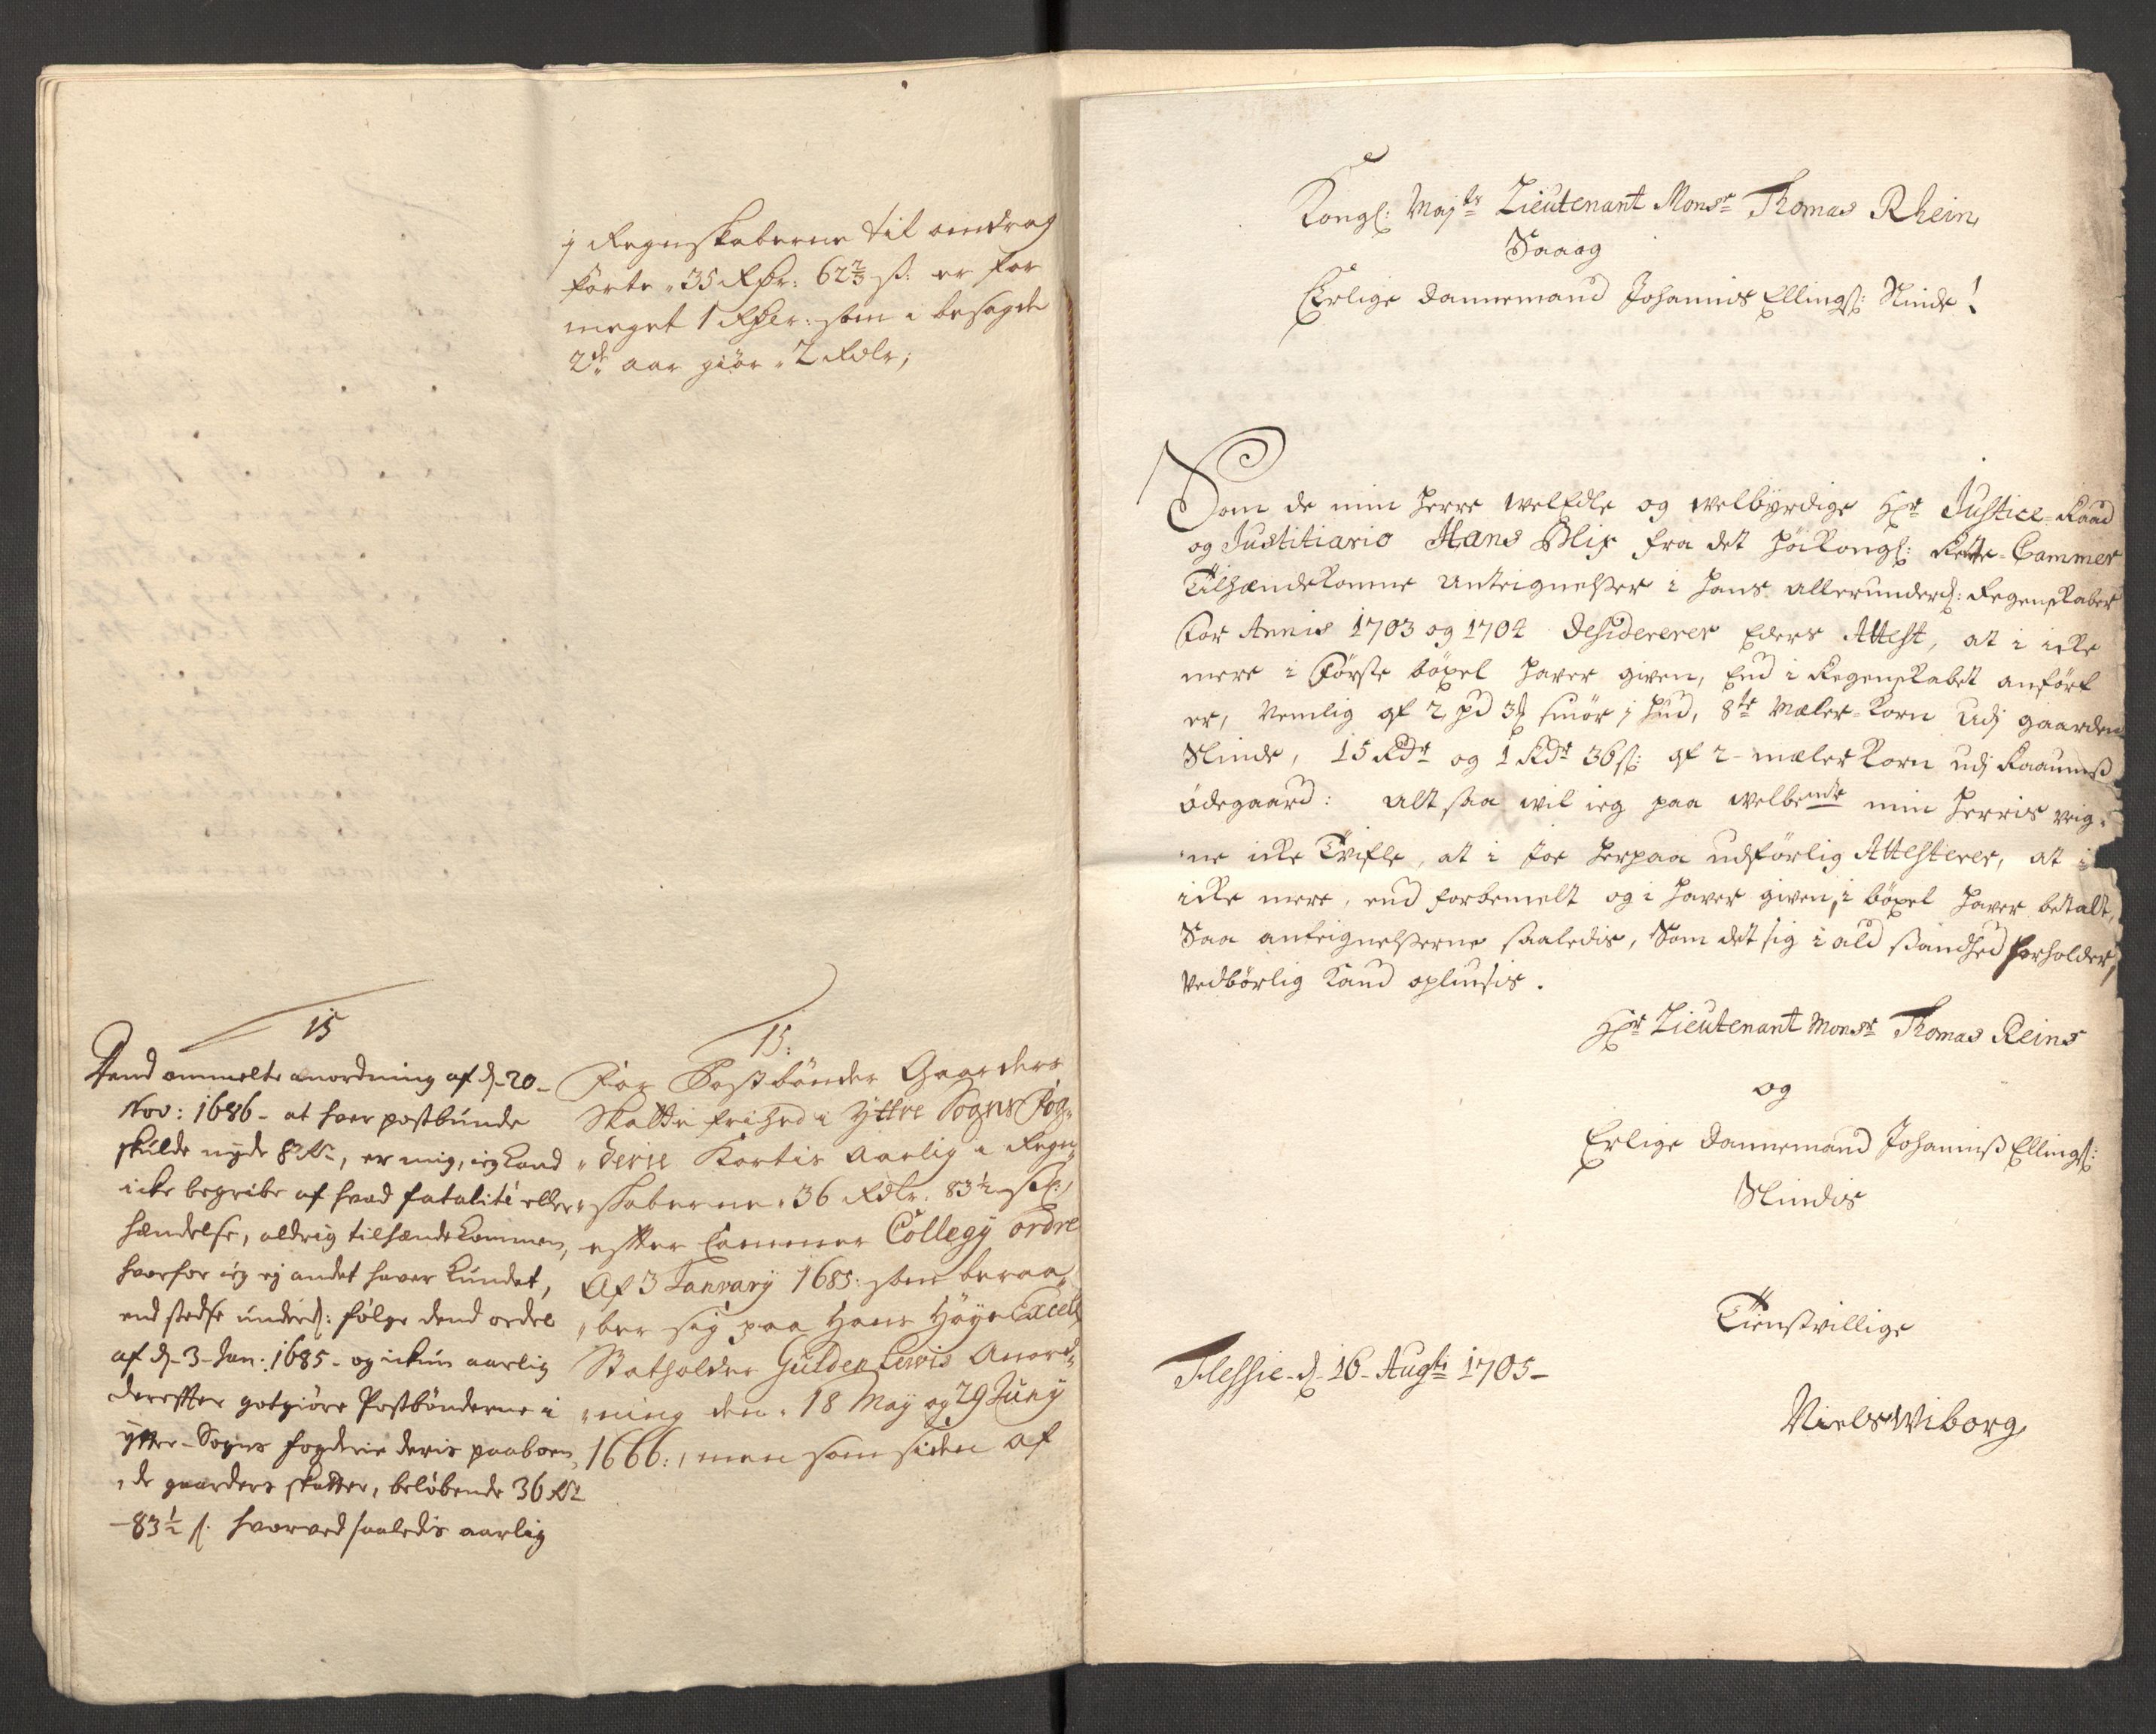 i Regenskaberne til omdrag
førte 35 Rdr: 62 2/3 ß: er for
meget 1 Rdlr: som i besagde
2de aar giør 2 Rdlr;
15
Dend ommelte anordning af d. 20
Nov: 1686 - at hver postbunde
skulde nyde 8 Rdr, er mig, ieg kand
icke begribe af hvad fatalité eller
hændelse, aldrig tilhænde kommen,
hvorfor ieg ej andet haver kundet,
end stedse underd: følge dend ordre
af d. 3 Jan: 1685 - og ickun aarlig
derefter gotgiøre Postbønderne i
ytter-Sogns fogderie deris paaboen
de gaarders skatter, beløbende 36 Rdr
- 83 1/2 ß. hvorved saaledis aarlig
15:
For Postbønder Gaarders
Skatte frihed i Yttre Sogns Fog
derie Kortis Aarlig i Regn
skaberne 36 Rdlr. 83 1/2 sk:,
efter Cammer Collegy ordre
Af 3 January 1685: som beraa
ber sig paa Hans Høye Excell
Statholder Guldenlewis Anord
ning den 18 May og 29 Juny
1666:, men som siden af
Kongl: Majts Lieutenant Monsr Thomas Rhein
Saaog
Erlige Dannemand Johannis Ellingß: Slinde!
Som de min Herre WelEdle og Welbyrdige Hr Justice-Raad
og Justitiario Hans Blix fra det HøiKongl: Rente-Cammer
Tilhændekomne Anteignelsser i Hans allerunderd: Regenskaber
for Annis 1703 og 1704 desidererer Eders Attest, at i icke
mere i Første bøxel haver given, End i Regenskabet anført
er, Nemlig af 2 pd 3 smør j Hud, 8te Mæler-Korn udj gaarden
Slinde, 15 Rdr og 1 Rdr 36 ß: af 2 mæler Korn udj Raaumß
ødegaard: altsaa wil ieg paa welbemte min Herris veig
ne icke Tvifle, at i joe Herpaa udførlig Attesterer, at i
icke mere, end forbemelt og i haver given, i bøxel haver betalt,
Saa anteignelsserne saaledis, Som det sig i ald sandhed forholder,
vedbørlig kand oplusis.
Hr Lieutenant Monsr Thomas Reins
og
Erlige Dannemand Johanniß Ellingß:
Slindis
Tienstvillige
Flessie d. 16 Augti 1705
Niels Wiborg